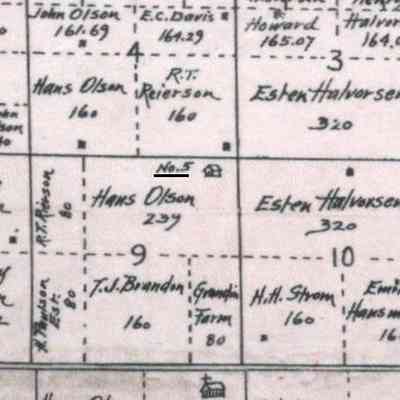 John Olson
161.69
E.C. Davis
164.29
Howard
165.07
Halvor
164.0
4
3
Hans Olson
160
R.T.
Reierson
160
Esten Halvorsen
320
No. 5
R.T. Rierson
80
Hans Olson
239
Esten Halvorsen
320
9
10
Est.
80
T.J. Brandon
160
Grandin
Farm
80
H.H. Strom
160
Emi
Hansm
16